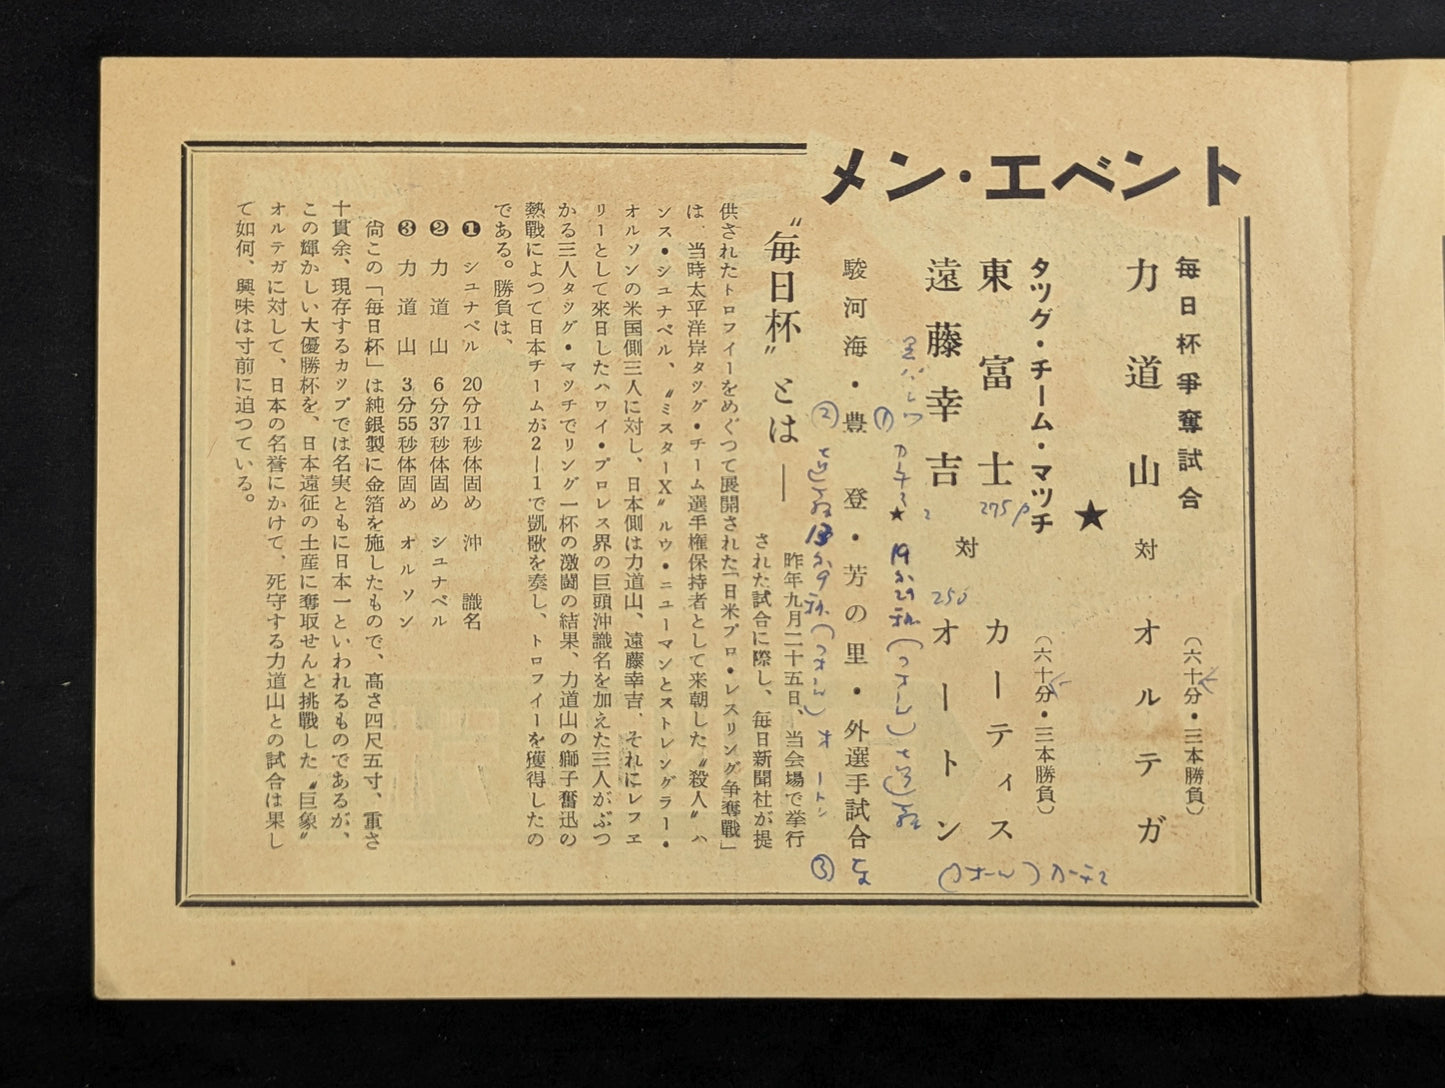 メン・エベント
毎日杯爭奪試合
(六十分・三本勝負)
力道山 対 オルテガ
★
タツグ・チーム・マツチ
(六十分・三本勝負)
東富士 カーティス
275p
対
250
遠藤幸吉 オートン
① カーチス 19分29秒
★
駿河海・豊登・芳の里・外選手試合
② 13分9秒 オートン
③
カーチス
〝毎日杯〟とは――
昨年九月二十五日、当会場で挙行
された試合に際し、毎日新聞社が提
供されたトロフイーをめぐつて展開された「日米プロ・レスリング争奪戰」
は、当時太平洋岸タツグ・チーム選手権保持者として来朝した〝殺人〟ハ
ンス・シユナベル、〝ミスターX〟ルウ・ニユーマンとストレングラー・
オルソンの米国側三人に対し、日本側は力道山、遠藤幸吉、それにレフエ
リーとして來日したハワイ・プロレス界の巨頭沖識名を加えた三人がぶつ
かる三人タツグ・マツチでリング一杯の激闘の結果、力道山の獅子奮迅の
熱戰によつて日本チームが2―1で凱歌を奏し、トロフイーを獲得したの
である。勝負は、
❶ シユナベル 20分11秒体固め 沖識名
❷ 力道山 6分37秒体固め シユナベル
❸ 力道山 3分55秒体固め オルソン
尙この「毎日杯」は純銀製に金箔を施したもので、高さ四尺五寸、重さ
十貫余、現存するカツプでは名実ともに日本一といわれるものであるが、
この輝かしい大優勝杯を、日本遠征の土産に奪取せんと挑戰した〝巨象〟
オルテガに対して、日本の名誉にかけて、死守する力道山との試合は果し
て如何、興味は寸前に迫つている。